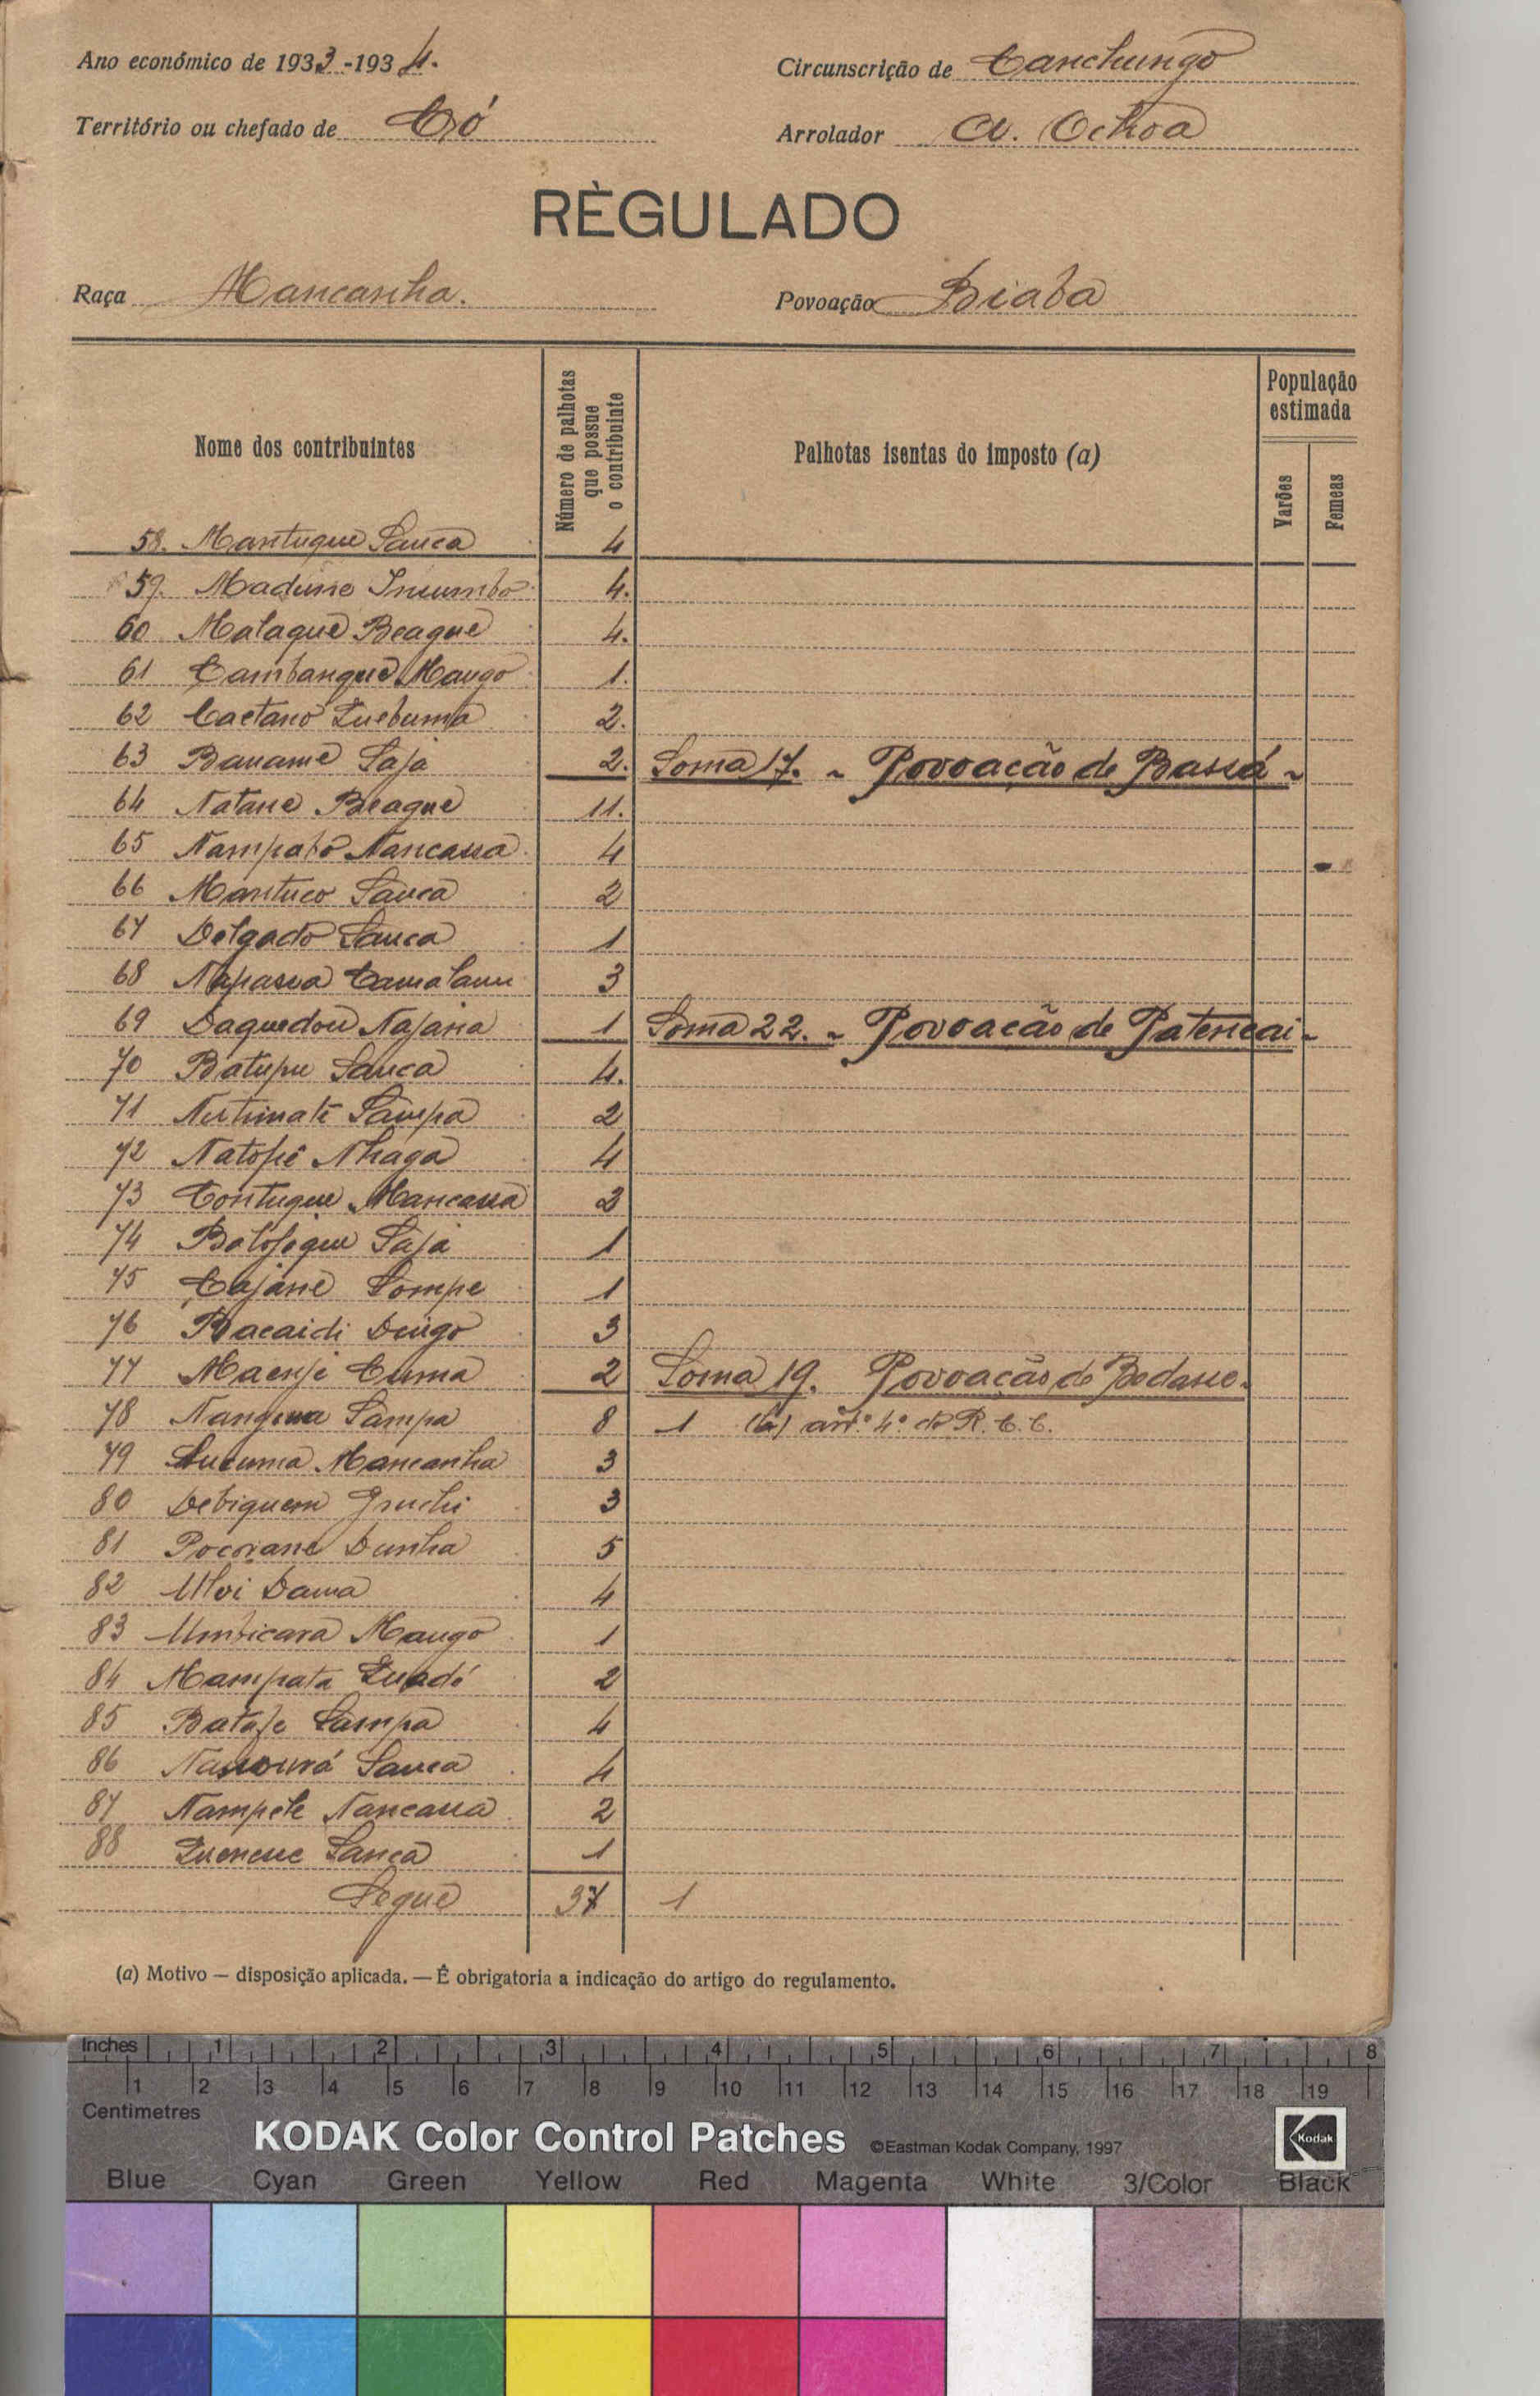 Ano económico de 1933-1934.
Circunscrição de Canchungo
Território ou chefado de Có
Arrolador A. Ochoa
RÈGULADO
Raça Mancanha.
Povoação Biaba
Nome dos contribuintes
Número de palhotas que possue o contribuinte
Palhotas isentas do imposto (a)
População estimada
Varões
Femeas
58. Mantuque Sanca 4
59. Madune Incumbo 4.
60 Malaque Beague 4.
61 Cambangue Mango 1.
62 Caetano Quebuma 2.
63 Baname Saja 2. Soma 17. ~ Povoação de Bassá ~
64 Natane Beague 11.
65 Nampabo Nancassa 4
66 Mantuco Sanca 2
67 Delgado Sanca 1
68 Napassa 3
69 Daquedou Najana 1 Soma 22. ~ Povoação de Patencai ~
70 Batupu Sanca 4.
71 Sampa 2
72 Natopé Nhaga 4
73 Contuque Mancassa 2
74 Batofeque Saja 1
75 Cajane Sompe 1
76 Bacaidi Dingo 3
77 Maenje Cuma 2 Soma 19. Povoação de Bedane.
78 Sampa 8 1 (b) artº. 4º do R. C. C.
79 Mancanha 3
80 Debiquem 3
81 Pocriane Dunha 5
82 Uloi Dama 4
83 Umbicara Mango 1
84 Mampata Quadé 2
85 Bataje Sampa 4
86 Sanca 4
87 Nampele Nancassa 2
88 Sanca 1
Segue 37 1
(a) Motivo — disposição aplicada. — É obrigatoria a indicação do artigo do regulamento.
Inches 1 2 3 4 5 6 7 8
1 2 3 4 5 6 7 8 9 10 11 12 13 14 15 16 17 18 19
Centimetres
KODAK Color Control Patches ©Eastman Kodak Company, 1997 Kodak
Blue Cyan Green Yellow Red Magenta White 3/Color Black